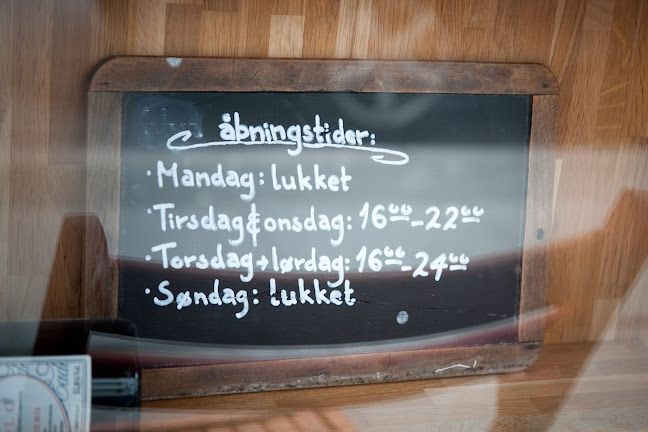 åbningstider:
· Mandag: lukket
· Tirsdag & onsdag: 16⁰⁰-22⁰⁰
· Torsdag → lørdag: 16⁰⁰-24⁰⁰
· Søndag: lukket